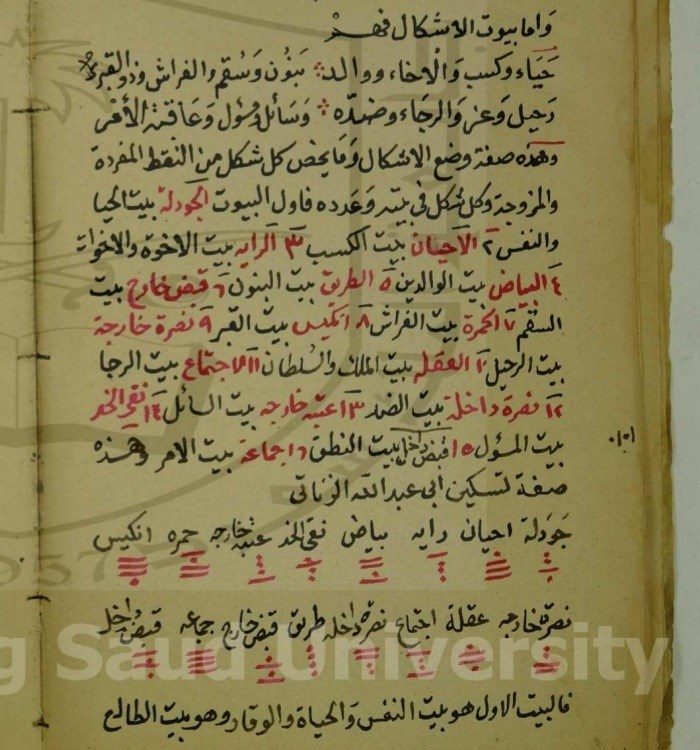 واما بيوت الاشكال فهم
حياه وكسب والاخاء ووالد بنون وسقم والفراش وذو القبر
رحيل وعز والرجاء وضده وسائل ومسؤل وعاقبة الأمر
وهذه صفة وضع الاشكال وما يخص كل شكل من النقط المفردة
والمزوجة وكل شكل في بيته وعدده فاول البيوت الجودلة بيت الحيا
والنفس ٢ الاحيان بيت الكسب ٣ الرايه بيت الاخوة والاخوات
٤ البياض بيت الوالدين ٥ الطريق بيت البنون ٦ قبض خارج بيت
السقم ٧ الحمرة بيت الفراش ٨ انكيس بيت القبر ٩ نصرة خارجة
بيت الرحيل ١٠ العقله بيت الملك والسلطان ١١ الاجتماع بيت الرجا
١٢ نصرة داخلة بيت الضد ١٣ عتبه خارجه بيت السائل ١٤ نقي الخد
بيت المسؤل ١٥ قبض داخل بيت النطق ١٦ جماعة بيت الامر وهذه
صفة تسكين ابي عبد الله الزناتي
جودلة احيان رايه بياض نقي الخد عتبه خارجه حمره انكيس
نصرة خارجه عقلة اجتماع نصرة داخله طريق قبض خارج جماعه قبض داخل
فالبيت الاول هو بيت النفس والحياة والوقار وهو بيت الطالع
King Saud University
1957